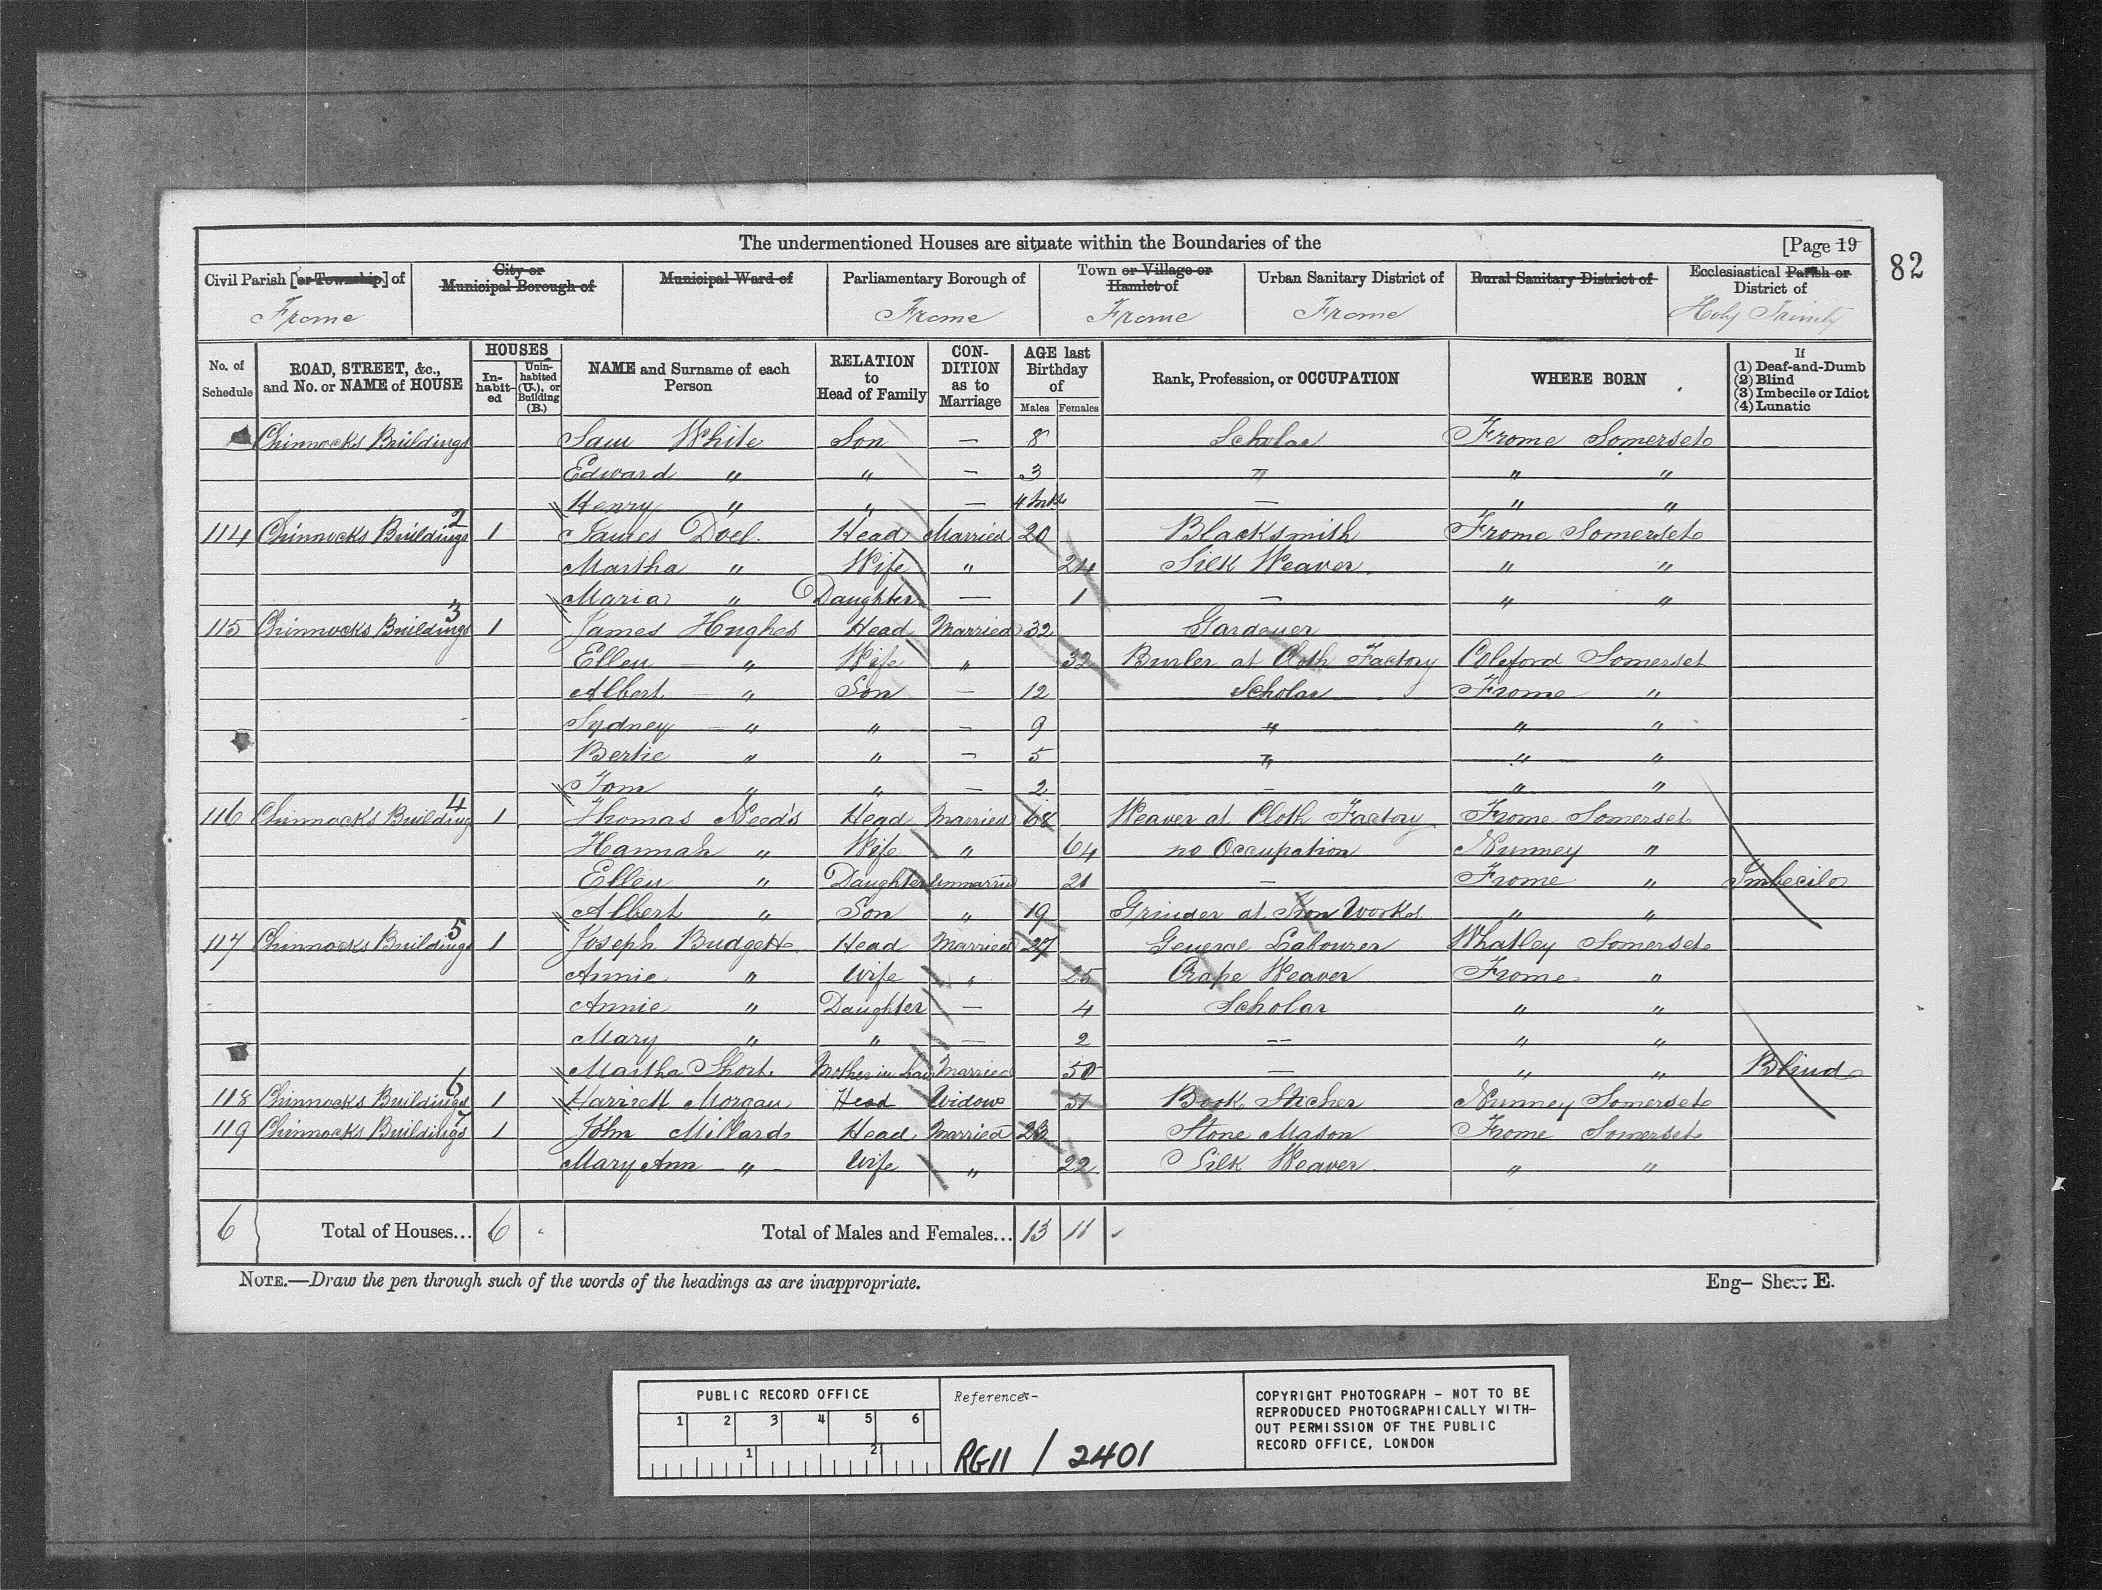 The undermentioned Houses are situate within the Boundaries of the [Page 19
82
Civil Parish [or Township] of Frome
City or Municipal Borough of
Municipal Ward of
Parliamentary Borough of Frome
Town or Village or Hamlet of Frome
Urban Sanitary District of Frome
Rural Sanitary District of
Ecclesiastical Parish or District of Holy Trinity
No. of Schedule
ROAD, STREET, &c., and No. or NAME of HOUSE
HOUSES
Inhabited
Uninhabited (U.), or Building (B.)
NAME and Surname of each Person
RELATION to Head of Family
CONDITION as to Marriage
AGE last Birthday of
Males Females
Rank, Profession, or OCCUPATION
WHERE BORN
If
(1) Deaf-and-Dumb
(2) Blind
(3) Imbecile or Idiot
(4) Lunatic
Chinnocks Buildings Sam White Son — 8 Scholar Frome Somerset
Edward " " — 3 " " "
Henry " " — 4 Mths — " "
114 2 Chinnocks Buildings 1 James Doel Head Married 20 Blacksmith Frome Somerset
Martha " Wife " 24 Silk Weaver " "
Maria " Daughter — 1 — " "
115 3 Chinnocks Buildings 1 James Hughes Head Married 32 Gardener
Ellen " Wife " 32 Burler at Cloth Factory Coleford Somerset
Albert " Son — 12 Scholar Frome "
Sydney " " — 9 " " "
Bertie " " — 5 " " "
Tom " " — 2 — " "
116 4 Chinnocks Building 1 Thomas Need's Head Married 68 Weaver at Cloth Factory Frome Somerset
Hannah " Wife " 64 no Occupation Nunney "
Ellen " Daughter Unmarried 21 — Frome " Imbecile
Albert " Son " 19 Grinder at Iron Works " "
117 5 Chinnocks Buildings 1 Joseph Budgett Head Married 27 General Labourer Whatley Somerset
Annie " Wife " 25 Crape Weaver Frome "
Annie " Daughter — 4 Scholar " "
Mary " " — 2 — " "
Martha Short Mother in Law Married 50 — " " Blind
118 6 Chinnocks Buildings 1 Harriett Morgan Head Widow 51 Book Sticher Nunney Somerset
119 7 Chinnocks Buildings 1 John Millard Head Married 23 Stone Mason Frome Somerset
Mary Ann " Wife " 22 Silk Weaver " "
6 Total of Houses... 6 Total of Males and Females... 13 11
NOTE.—Draw the pen through such of the words of the headings as are inappropriate.
Eng— Sheet E.
PUBLIC RECORD OFFICE
1 2 3 4 5 6
1 2
Reference:-
RG11 / 2401
COPYRIGHT PHOTOGRAPH - NOT TO BE
REPRODUCED PHOTOGRAPHICALLY WITH-
OUT PERMISSION OF THE PUBLIC
RECORD OFFICE, LONDON